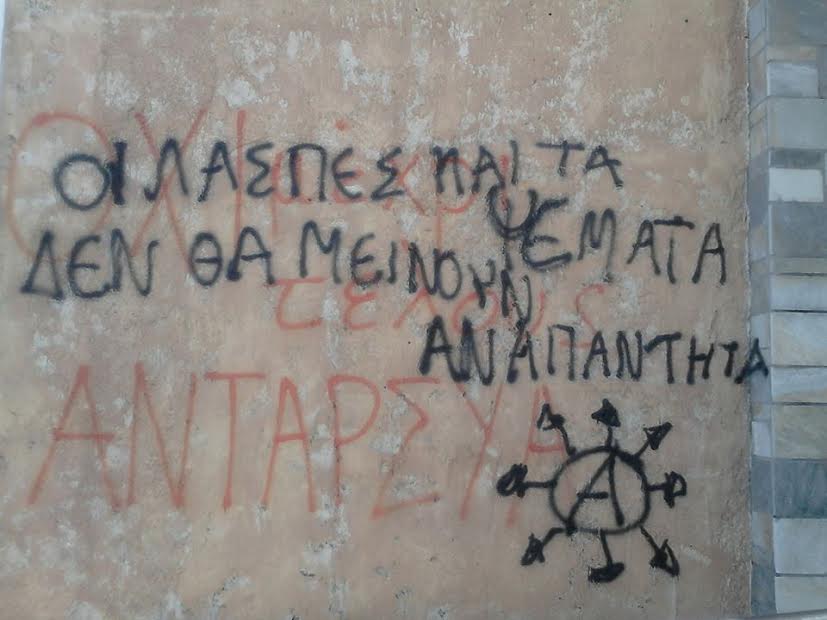 ΟΙ ΛΑΣΠΕΣ ΚΑΙ ΤΑ
ΨΕΜΑΤΑ
ΔΕΝ ΘΑ ΜΕΙΝΟΥΝ
ΑΝΑΠΑΝΤΗΤΑ
Α
ΟΧΙ μέχρι
τέλους
ΑΝΤΑΡΣΥΑ